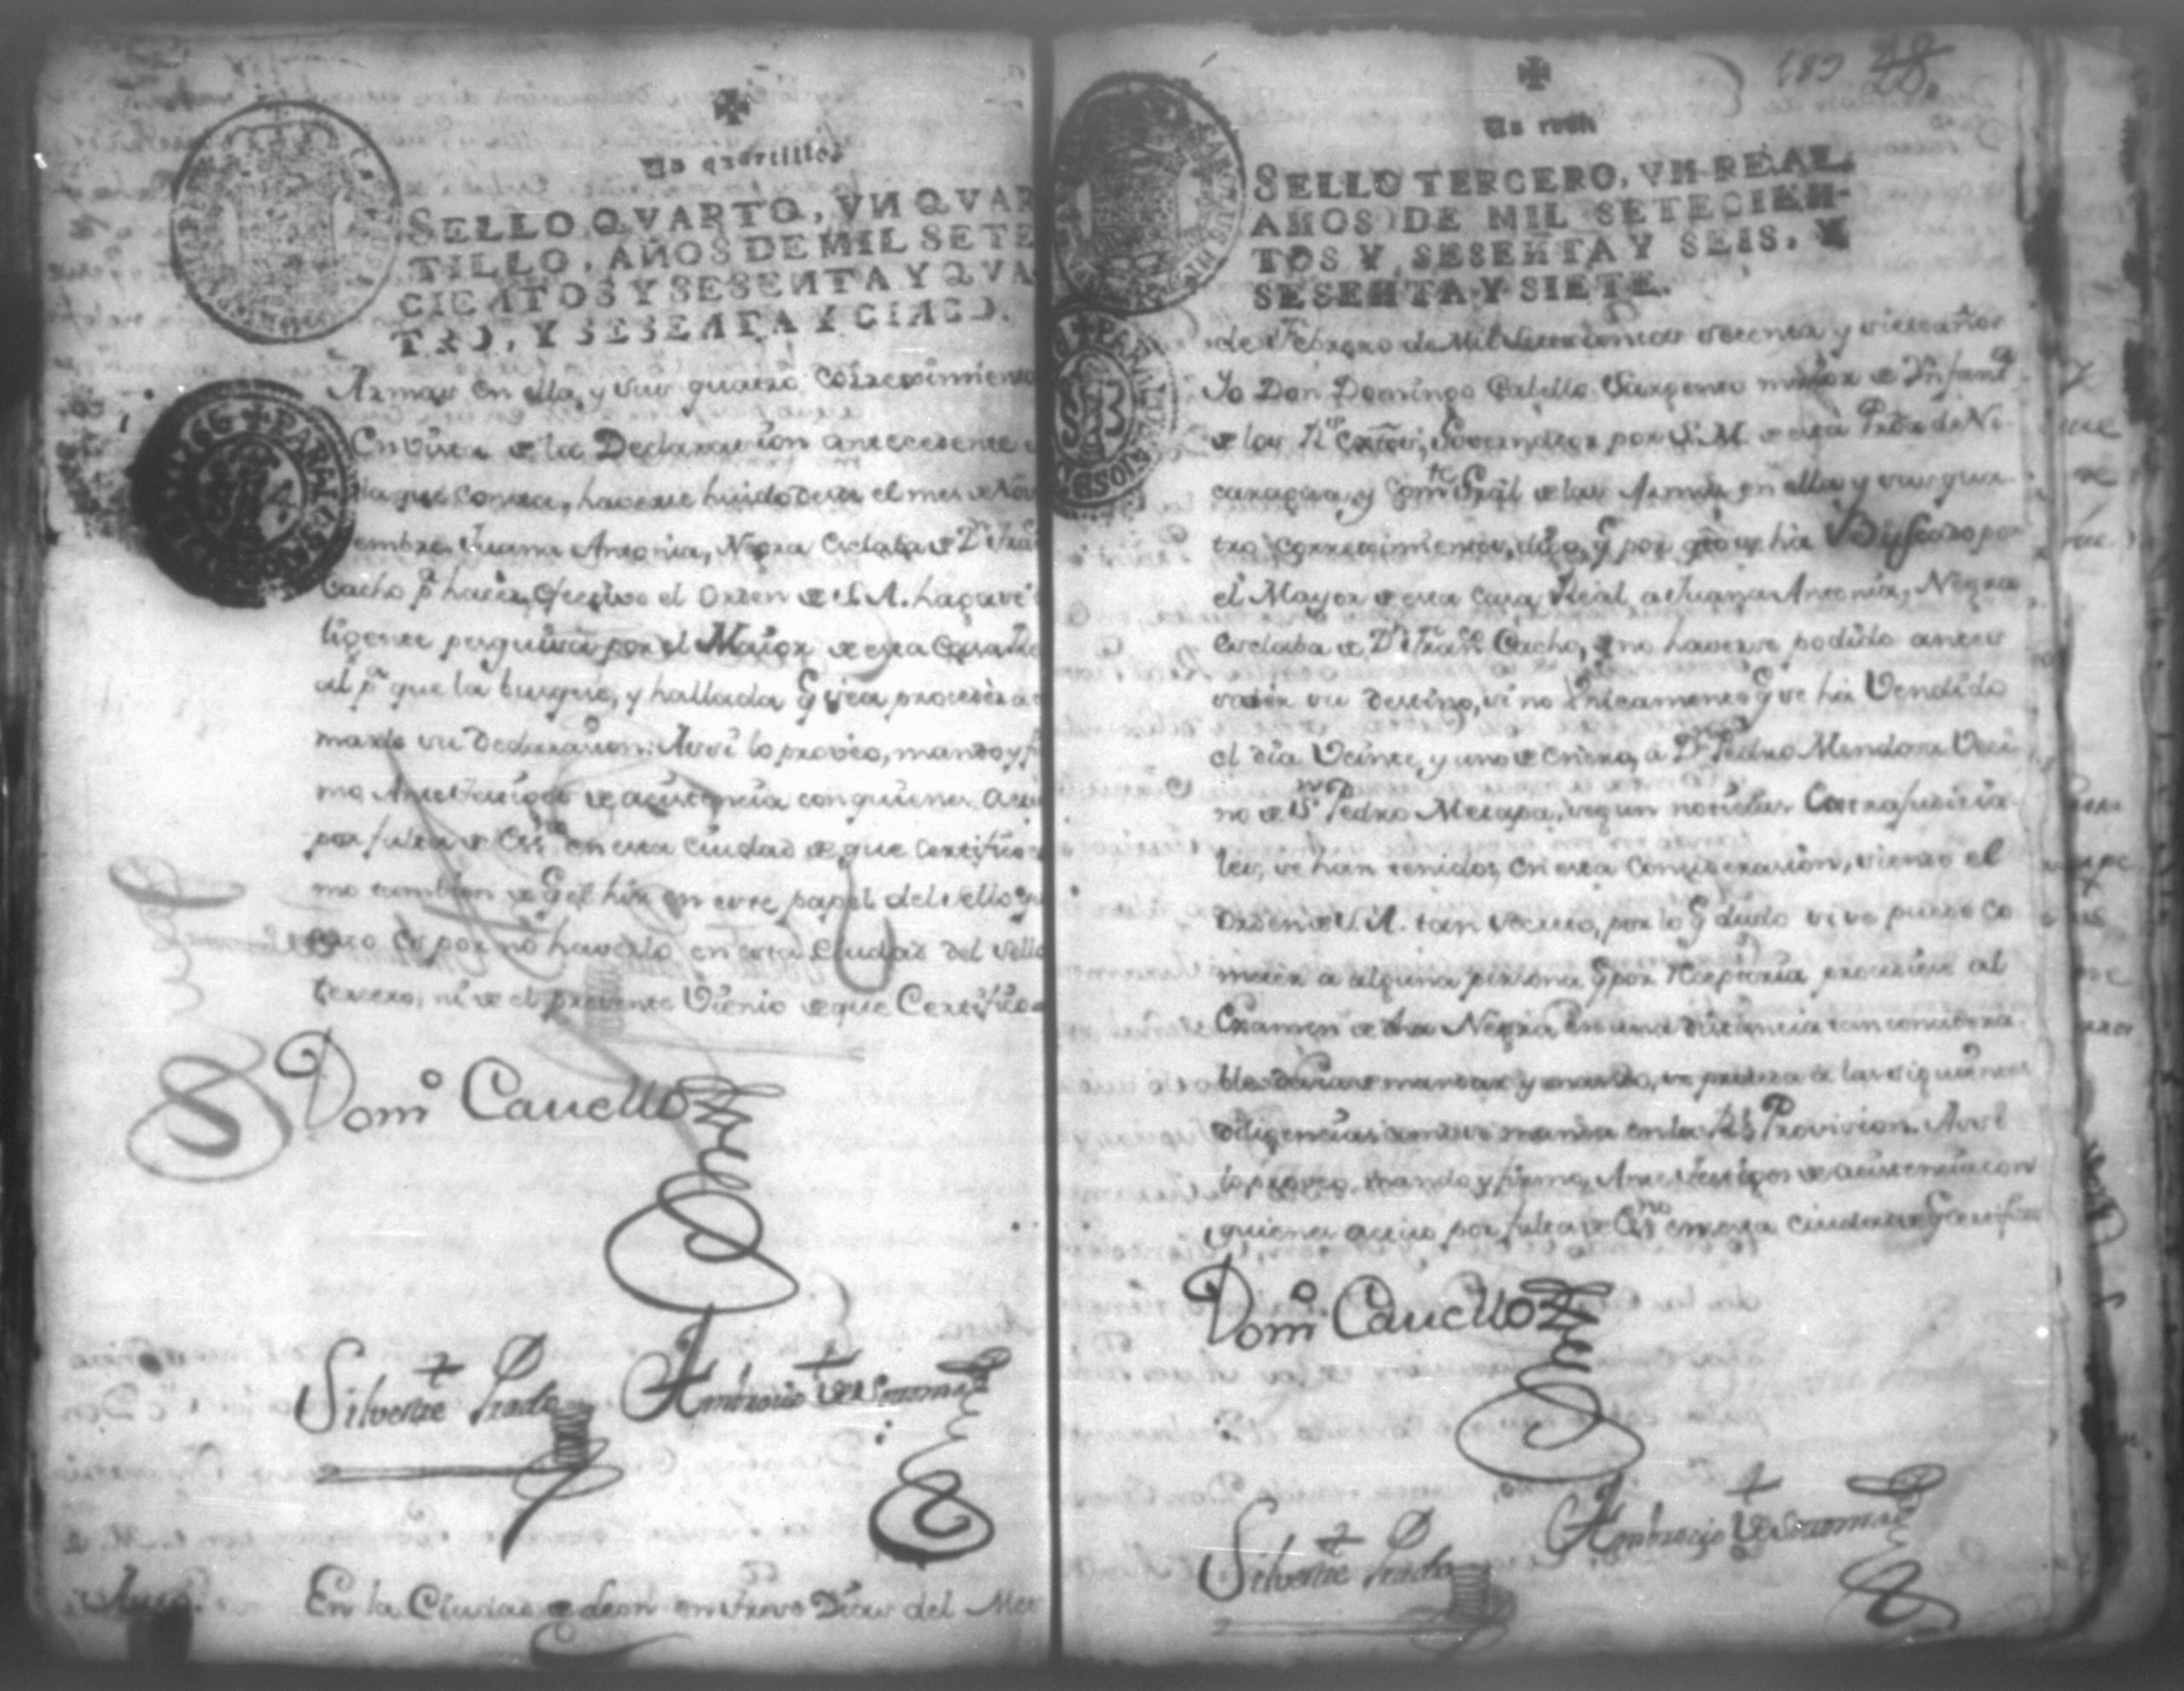 Un quartillo
SELLO QVARTO, VN QVAR
TILLO, AÑOS DE MIL SETE
CIENTOS Y SESENTA Y QVA
TRO, Y SESENTA Y CINCO.
Armas en ella, y sus quatro correximiento
En vista de la Declarazion antecedente
la que consta, haverse huido desde el mes de Nov
iembre, Juana Antonia, Negra Esclaba de Dn Fran
Cacho pa hacer efectivo el orden de S. A. hagase
ligente pesquisa por el Maior de esta Casa Re
al pa que la busque, y hallada q sea proceder a
marle su declarazion: Assi lo proveo, mando y f
mo Ante testigos de asistencia con quienes actu
por falta de Essno en esta ciudad de que certifico
mo tambien de q se hizo en este papel del sello q
arto es por no haverlo en esta Ciudad del sello
tercero, ni de el presente Vienio de que Certifico
Domo Cauello
Silvestre Prado Ambrosio de
Auto. En la Ciudad de Leon en nueve Dias del Mes
189 28.
Un real
SELLO TERCERO, VN REAL,
AÑOS DE MIL SETECIEN-
TOS Y SESENTA Y SEIS, Y
SESENTA Y SIETE.
de Febrero de Mil Setecientos secenta y siete años
Yo Don Domingo Cabello Sargento maior de Infanta
de los Rs Exctos, Governador por S. M. de esta Proa de Ni-
caragua, y Comte Gral de las Armas en ella y sus qua-
tro correximientos, digo, q por qto se ha Buscado por
el Mayor de esta Casa Real, a Juana Antonia, Negra
Esclaba de Dn Franco Cacho, y no haverse podido
saber su destino, si no Unicamente q se ha Vendido
el dia Veinte y uno de Enero, a Dn Pedro Mendoza Veci-
no de Sn Pedro Metapa, segun noticias Extrajudicia-
les, se han tenido; En esta Consideracion, siendo el
Orden de S. A. tan secreto, por lo q dudo si se puede co
meter a alguna persona q por Requisitoria procediese al
Examen de dha Negra En una distancia tan considera-
ble: devia de mandar y mando, se prosiga a las siguientes
diligencias como se manda en la Rl Provision. Assi
lo proveo, mando y firmo, Ante testigos de asistencia con
quienes actuo por falta de Essno en esta ciudad de q certifico
Domo Cauello
Silvestre Prado Ambrosio de